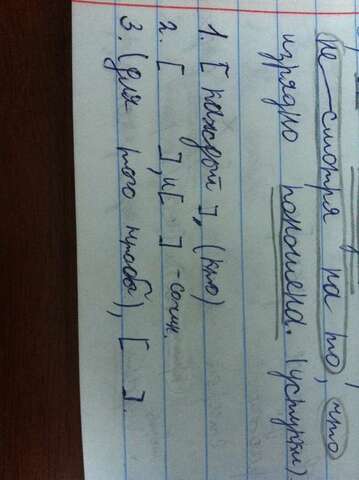 не смотря на то, что
изрядно поношена. (уступки)
1. [каждой], (кто)
2. [ ], и [ ] - сочин.
3. (для того чтобы), [ ].